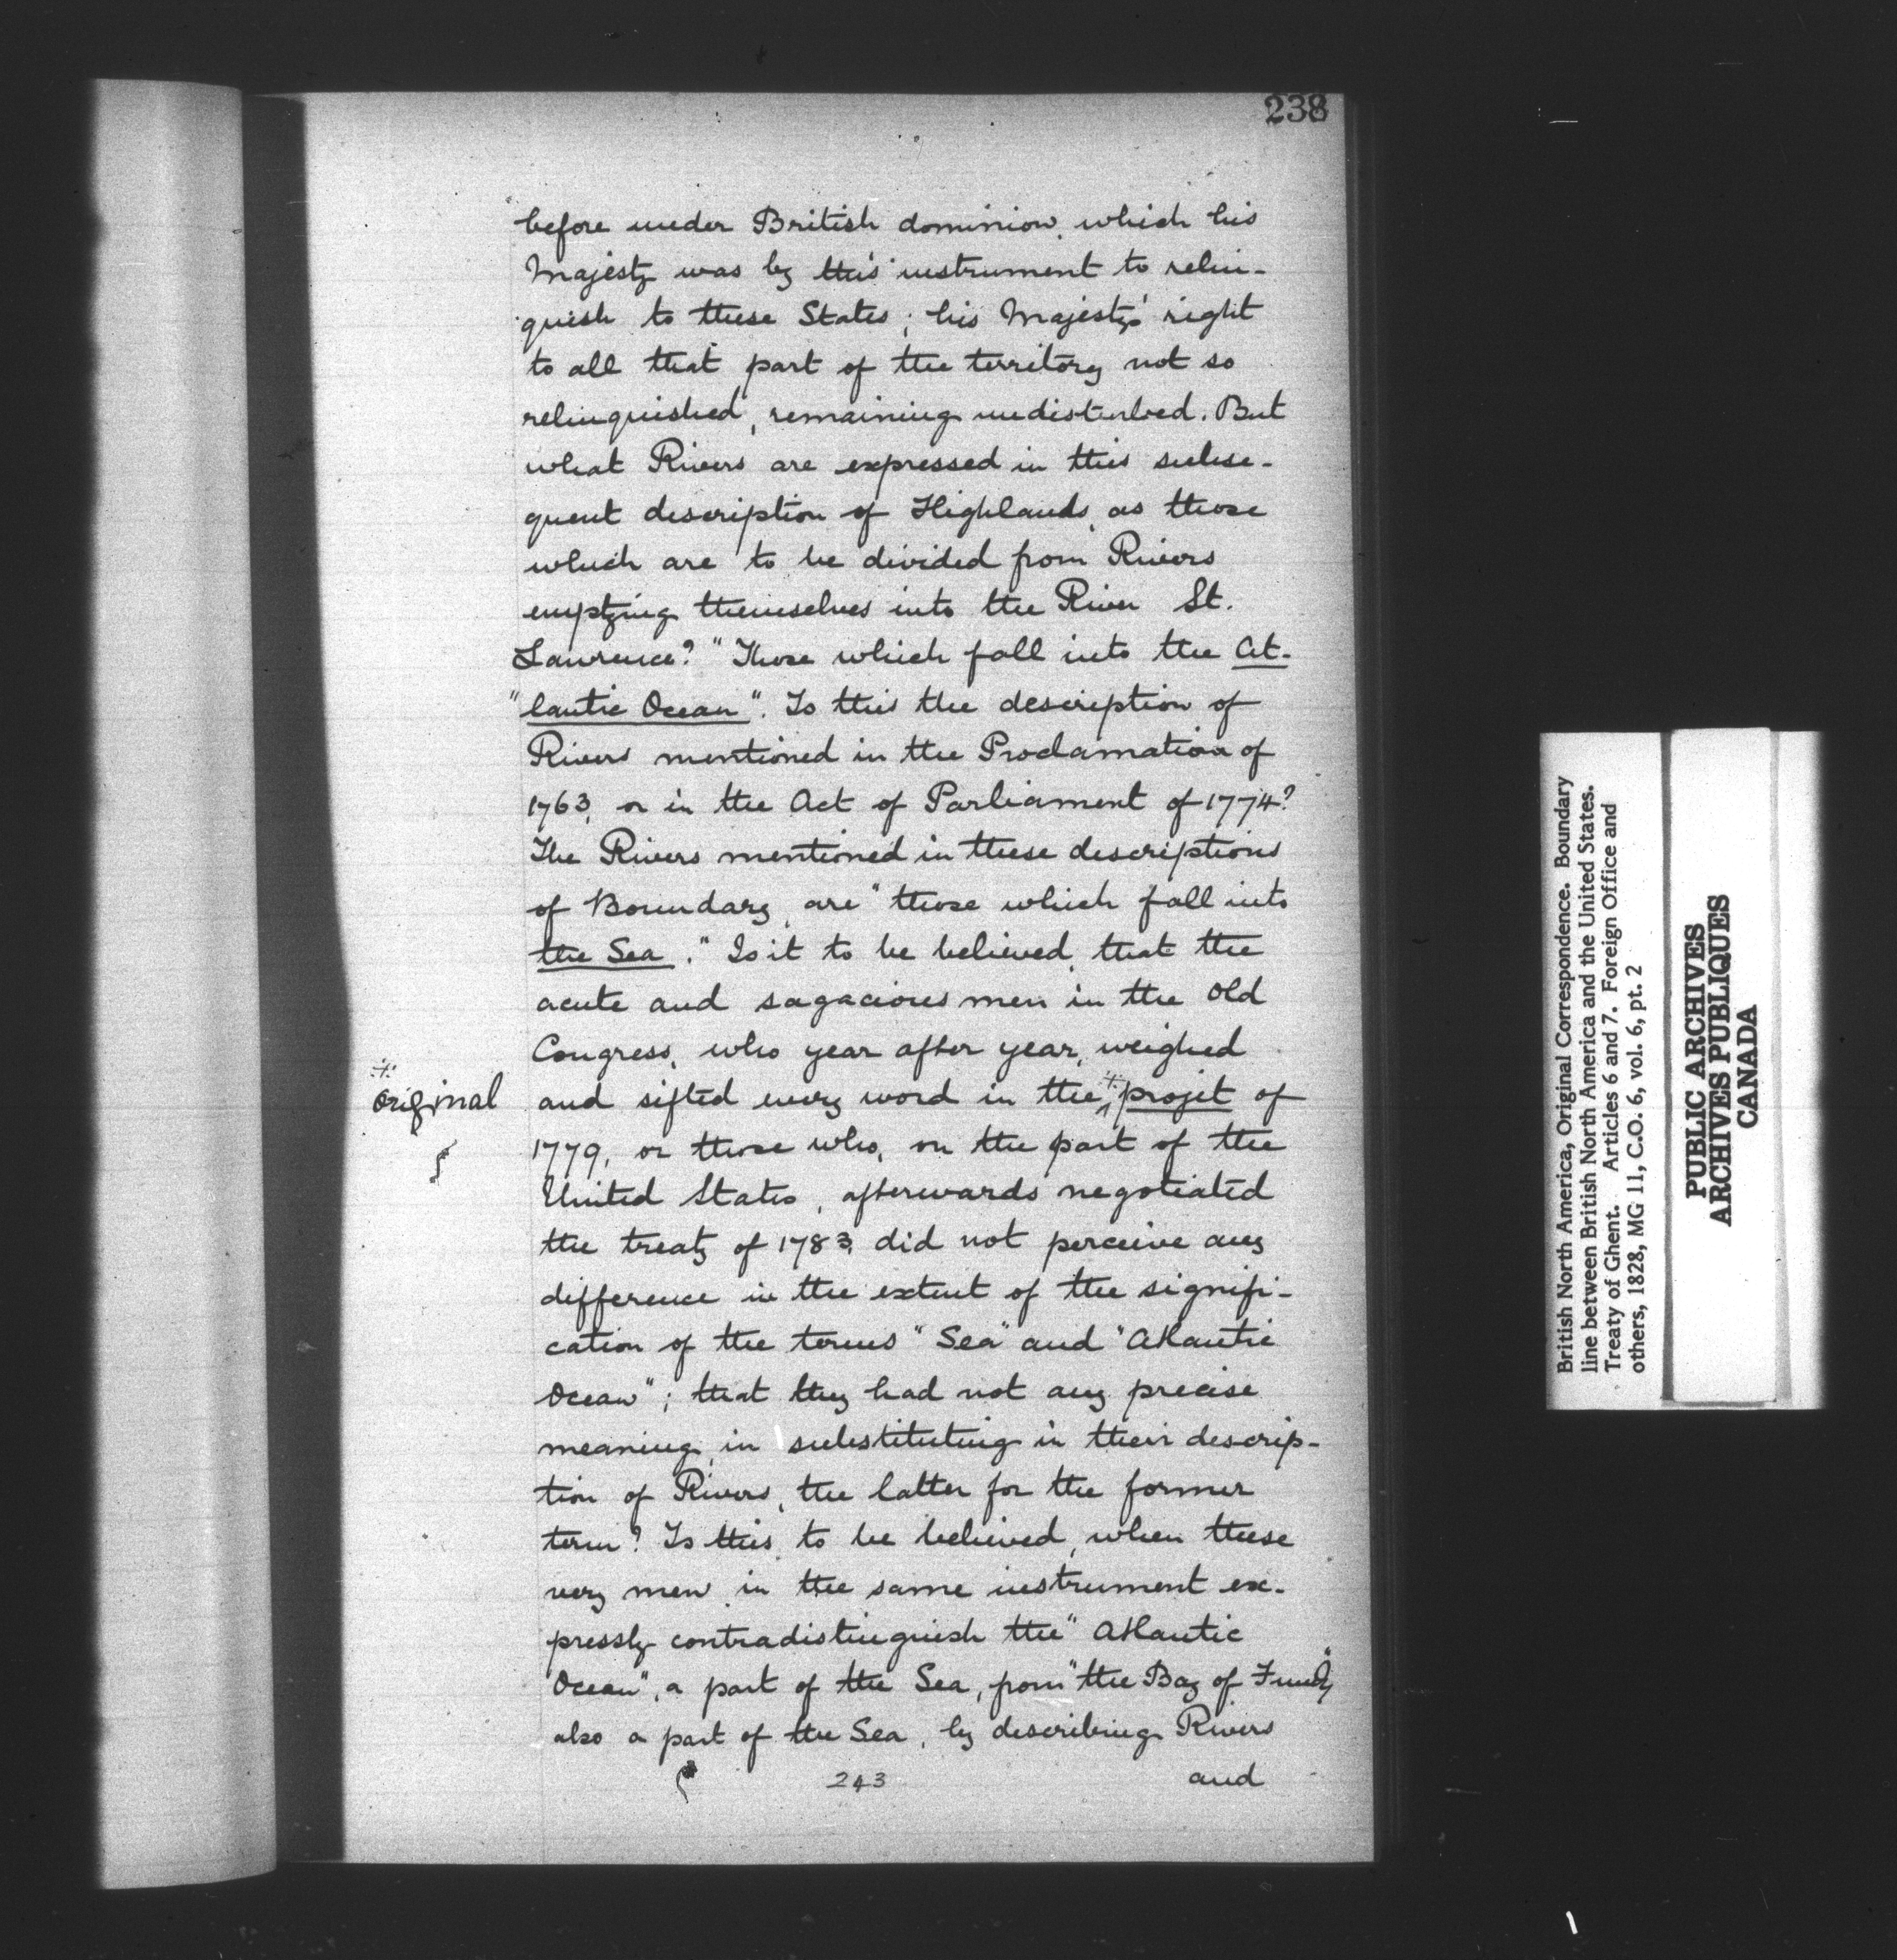 238
before under British dominion, which his
Majesty was by this instrument to relin-
quish to these States; his Majesty's right
to all that part of the territory not so
relinquished, remaining undisturbed. But
what Rivers are expressed in this subse-
quent description of Highlands, as those
which are to be divided from Rivers
emptying themselves into the River St.
Lawrence? "Those which fall into the At-
"lantic Ocean". Is this the description of
Rivers mentioned in the Proclamation of
1763, or in the Act of Parliament of 1774?
The Rivers mentioned in these descriptions
of Boundary, are "those which fall into
the Sea." Is it to be believed, that the
acute and sagacious men in the old
Congress, who year after year, weighed
original
and sifted every word in the projet of
1779, or those who, on the part of the
United States, afterwards negotiated
the treaty of 1783, did not perceive any
difference in the extent of the signifi-
cation of the terms "Sea" and "Atlantic
Ocean"; that they had not any precise
meaning, in substituting in their descrip-
tion of Rivers, the latter for the former
term? Is this, to be believed, when these
very men, in the same instrument ex-
pressly contradistinguish the "Atlantic
Ocean", a part of the Sea, from "the Bay of Fundy"
also a part of the Sea, by describing Rivers
243
and
British North America, Original Correspondence. Boundary
line between British North America and the United States.
Treaty of Ghent. Articles 6 and 7. Foreign Office and
others, 1828, MG 11, C.O. 6, vol. 6, pt. 2
PUBLIC ARCHIVES
ARCHIVES PUBLIQUES
CANADA